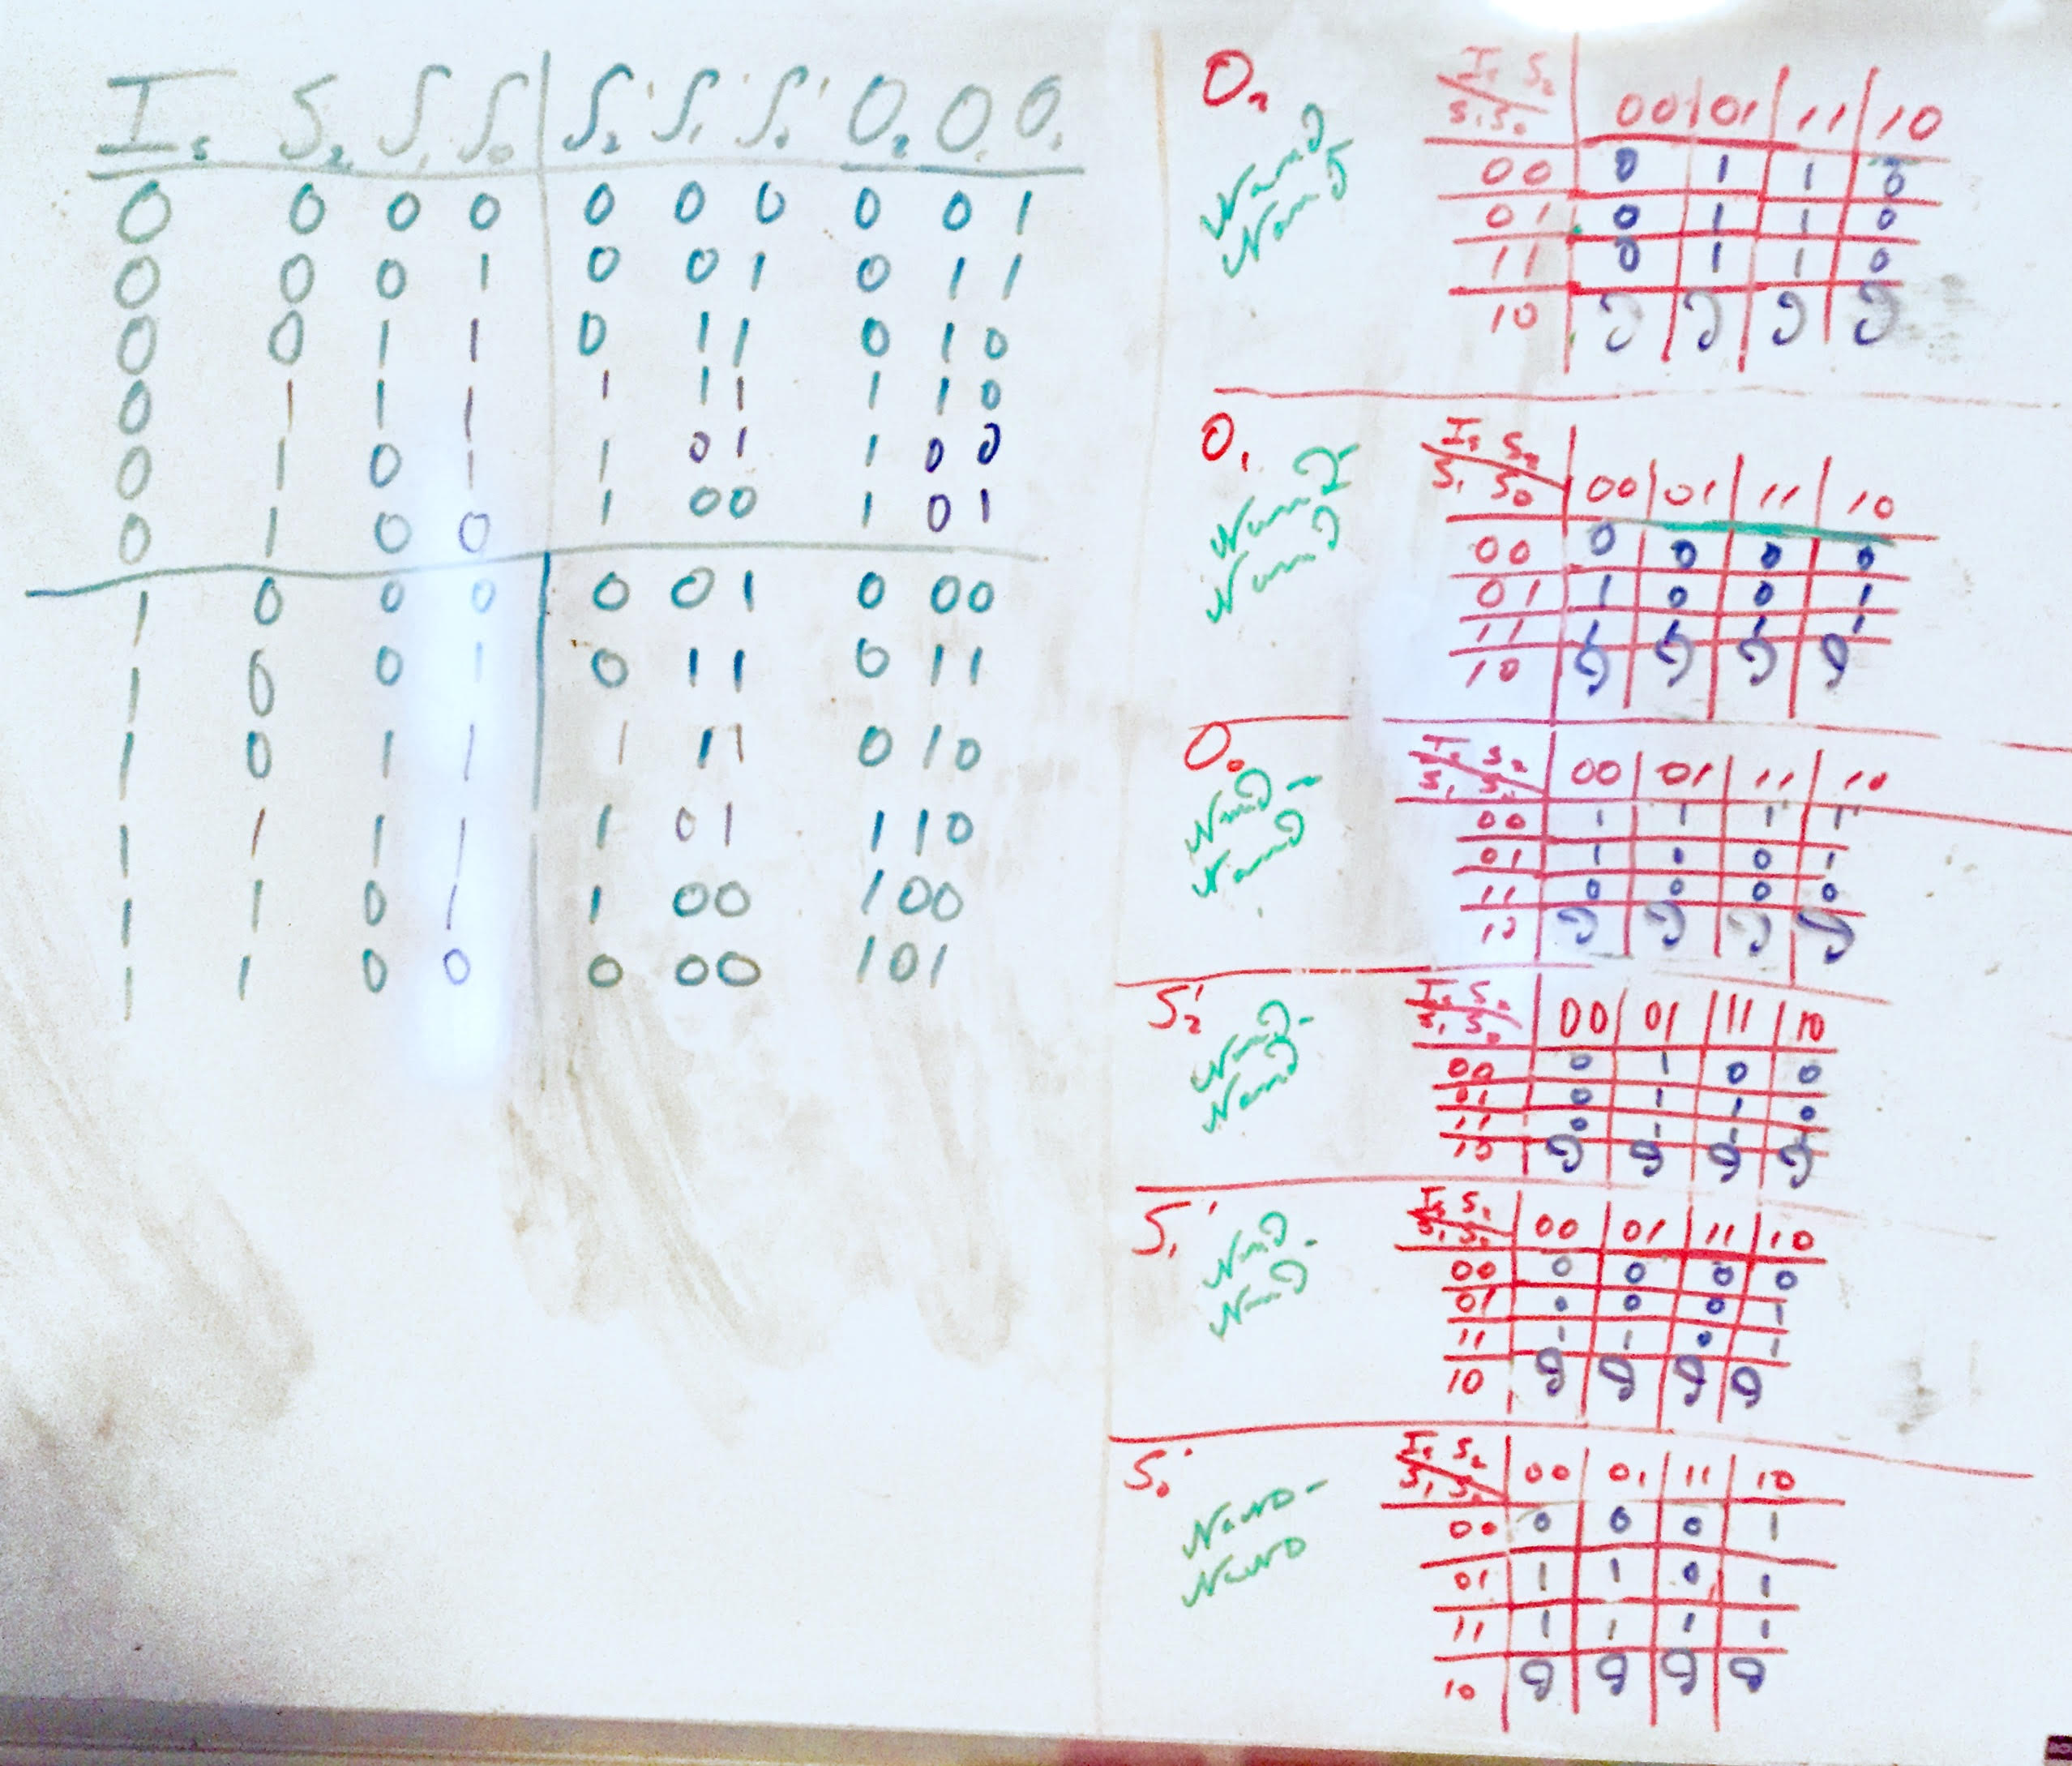 I_s S_2 S_1 S_0 S_2' S_1' S_0' O_2 O_1 O_1
0 0 0 0 0 0 0 0 0 1
0 0 0 1 0 0 1 0 1 1
0 0 1 1 0 1 1 0 1 0
0 1 1 1 1 1 1 1 1 0
0 1 0 1 1 0 1 1 0 0
0 1 0 0 1 0 0 1 0 1
1 0 0 0 0 0 1 0 0 0
1 0 0 1 0 1 1 0 1 1
1 0 1 1 1 1 1 0 1 0
1 1 1 1 1 0 1 1 1 0
1 1 0 1 1 0 0 1 0 0
1 1 0 0 0 0 0 1 0 1
O_2
Nand
Nand
I_s S_2
S_1 S_0 00 01 11 10
00 0 1 1 0
01 0 1 1 0
11 0 1 1 0
10
O_1
Nand-
Nand
I_s S_2
S_1 S_0 00 01 11 10
00 0 0 0 0
01 1 0 0 1
11 1 1 1 1
10
O_0
Nand-
Nand
I_s S_2
S_1 S_0 00 01 11 10
00 1 1 1 1
01 1 0 0 1
11 0 0 0 0
10
S_2'
Nand-
Nand
I_s S_2
S_1 S_0 00 01 11 10
00 0 1 0 0
01 0 1 1 0
11 0 1 1 1
10
S_1'
Nand-
Nand
I_s S_2
S_1 S_0 00 01 11 10
00 0 0 0 0
01 0 0 0 1
11 1 1 0 1
10
S_0'
NAND-
NAND
I_s S_2
S_1 S_0 00 01 11 10
00 0 0 0 1
01 1 1 0 1
11 1 1 1 1
10